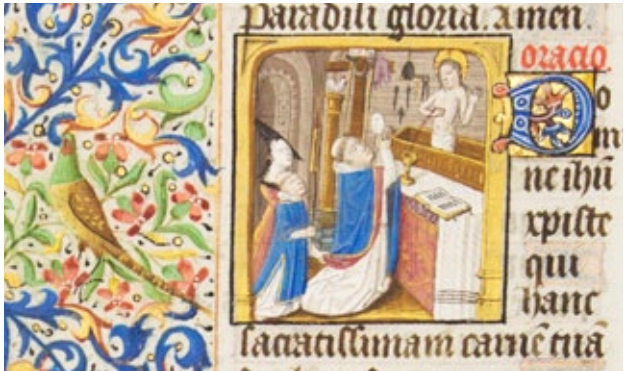 Paradisi gloria. amen.
oracio.
Do
mi
ne ihũ
xpiste
qui
hanc
sacratissimam carnẽ tuã